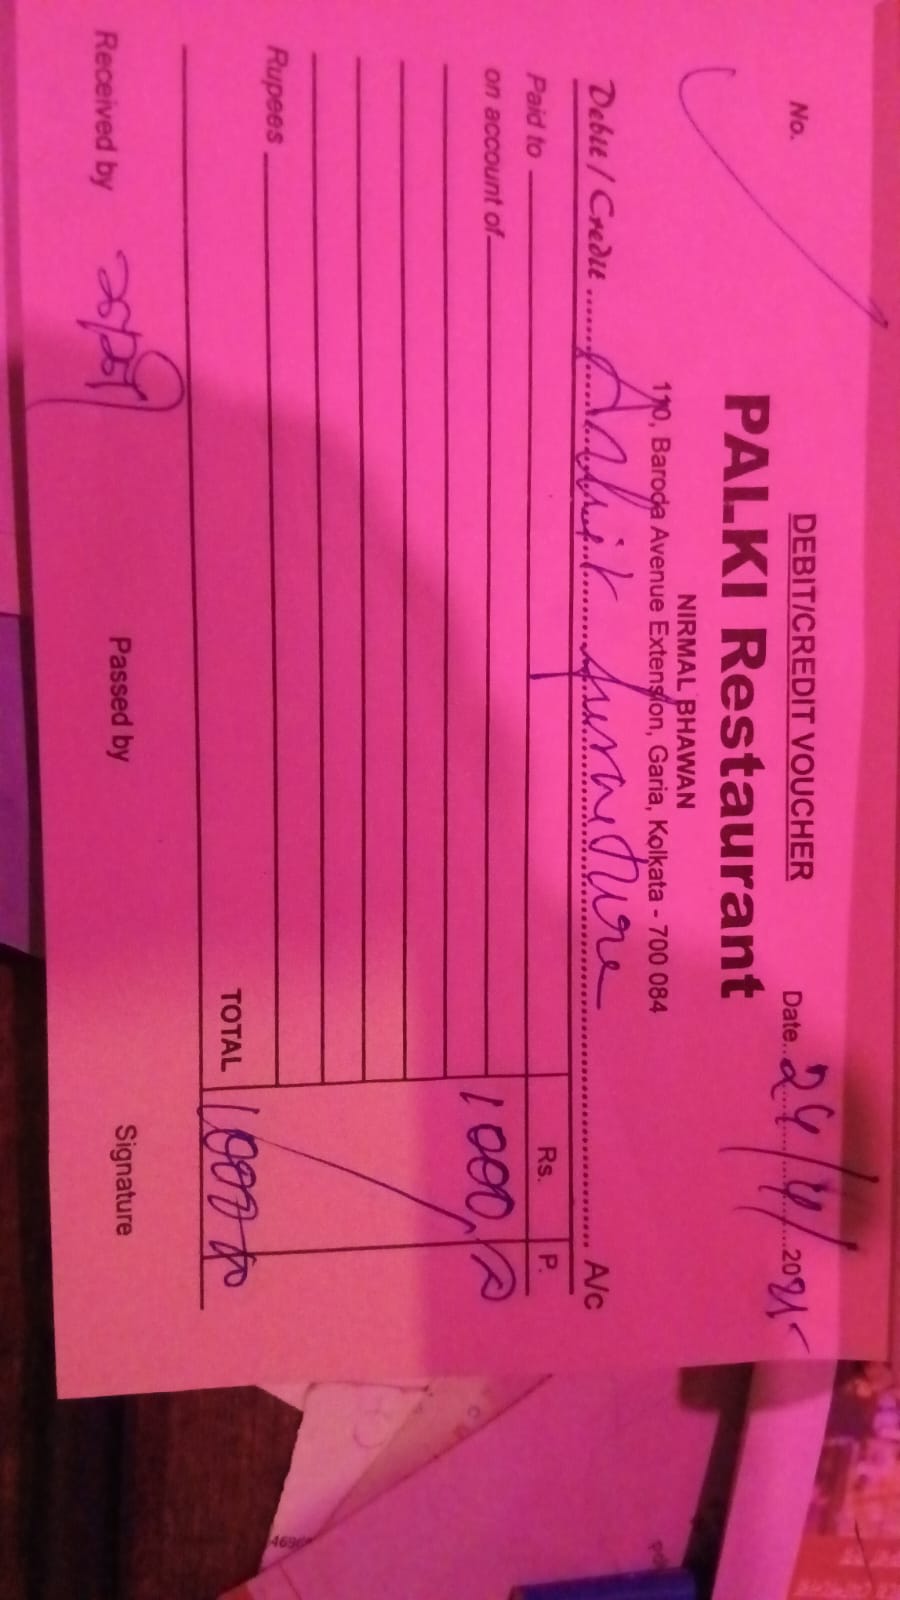 DEBIT/CREDIT VOUCHER
No.
Date..24/4/...2025
PALKI Restaurant
NIRMAL BHAWAN
110, Baroda Avenue Extension, Garia, Kolkata - 700 084
Debit / Credit ........ furniture ........ A/c
Paid to
Rs. P.
on account of
1000
Rupees
TOTAL 1000
Received by
Passed by
Signature